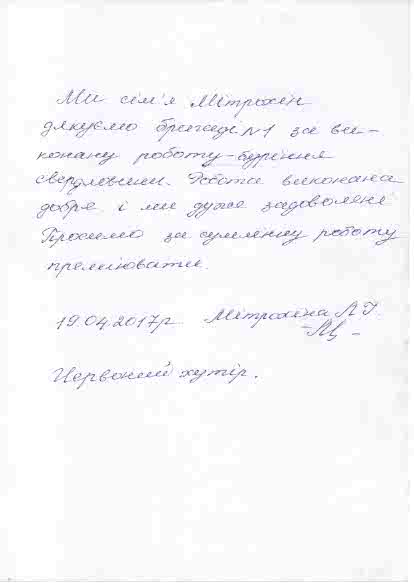 Ми сім'я Мітрохін
дякуємо бригаді №1 за ви-
конану роботу-буріння
свердловини. Робота виконана
добре і ми дуже задоволені
Просимо за сумлінну роботу
преміювати.
19.04.2017р Мітрохіна Л Г.
Червоний хутір.